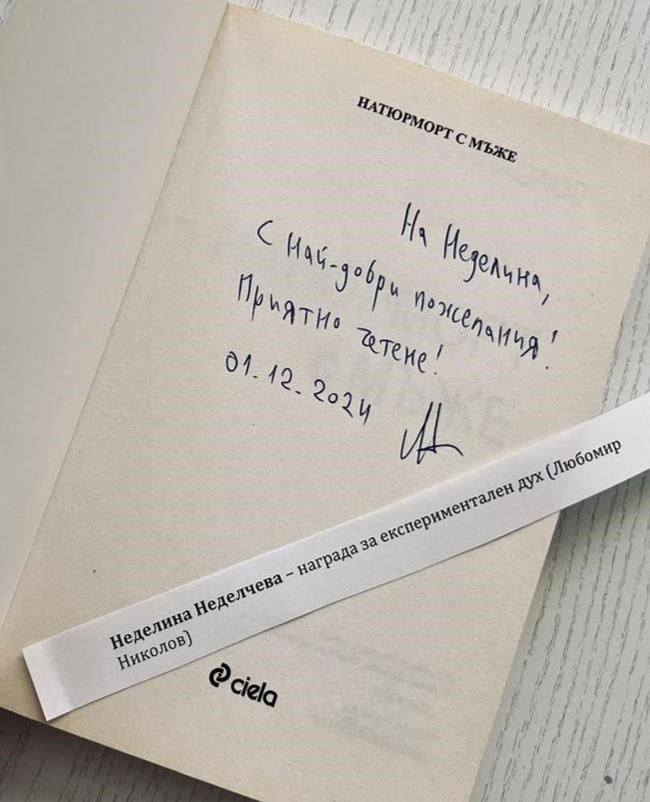 НАТЮРМОРТ С МЪЖЕ
На Неделина,
С най-добри пожелания!
Приятно четене!
01.12.2024
Неделина Неделчева – награда за експериментален дух (Любомир
Николов)
ciela